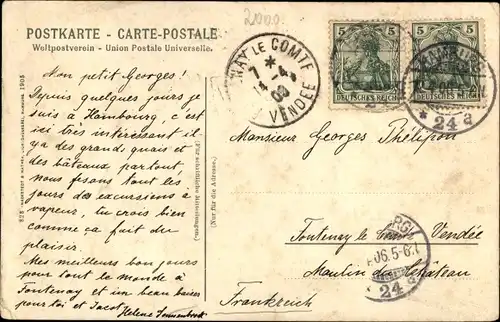 2000.
POSTKARTE - CARTE-POSTALE
Weltpostverein - Union Postale Universelle.
Mon petit Georges!
Depuis quelques jours je
suis à Hambourg, c'est
ici très intéressant il
y a des grands quais et
des bâteaux partout,
nous fesons tout les
jours des excursions à
vapeur, tu crois bien
comme ça fait du
plaisir.
Mes meilleurs bonjours
pour tout le monde à
Fontenay et un beau baiser
pour toi et Jacot Helene
(Für schriftliche Mitteilungen.)
(Nur für die Adresse.)
NAY LE COMTE
VENDÉE
5 5
DEUTSCHES REICH
DEUTSCHES REICH
* 24 a
Monsieur Georges Thélipon
Fontenay le Vendée
Moulin du Château
Frankreich